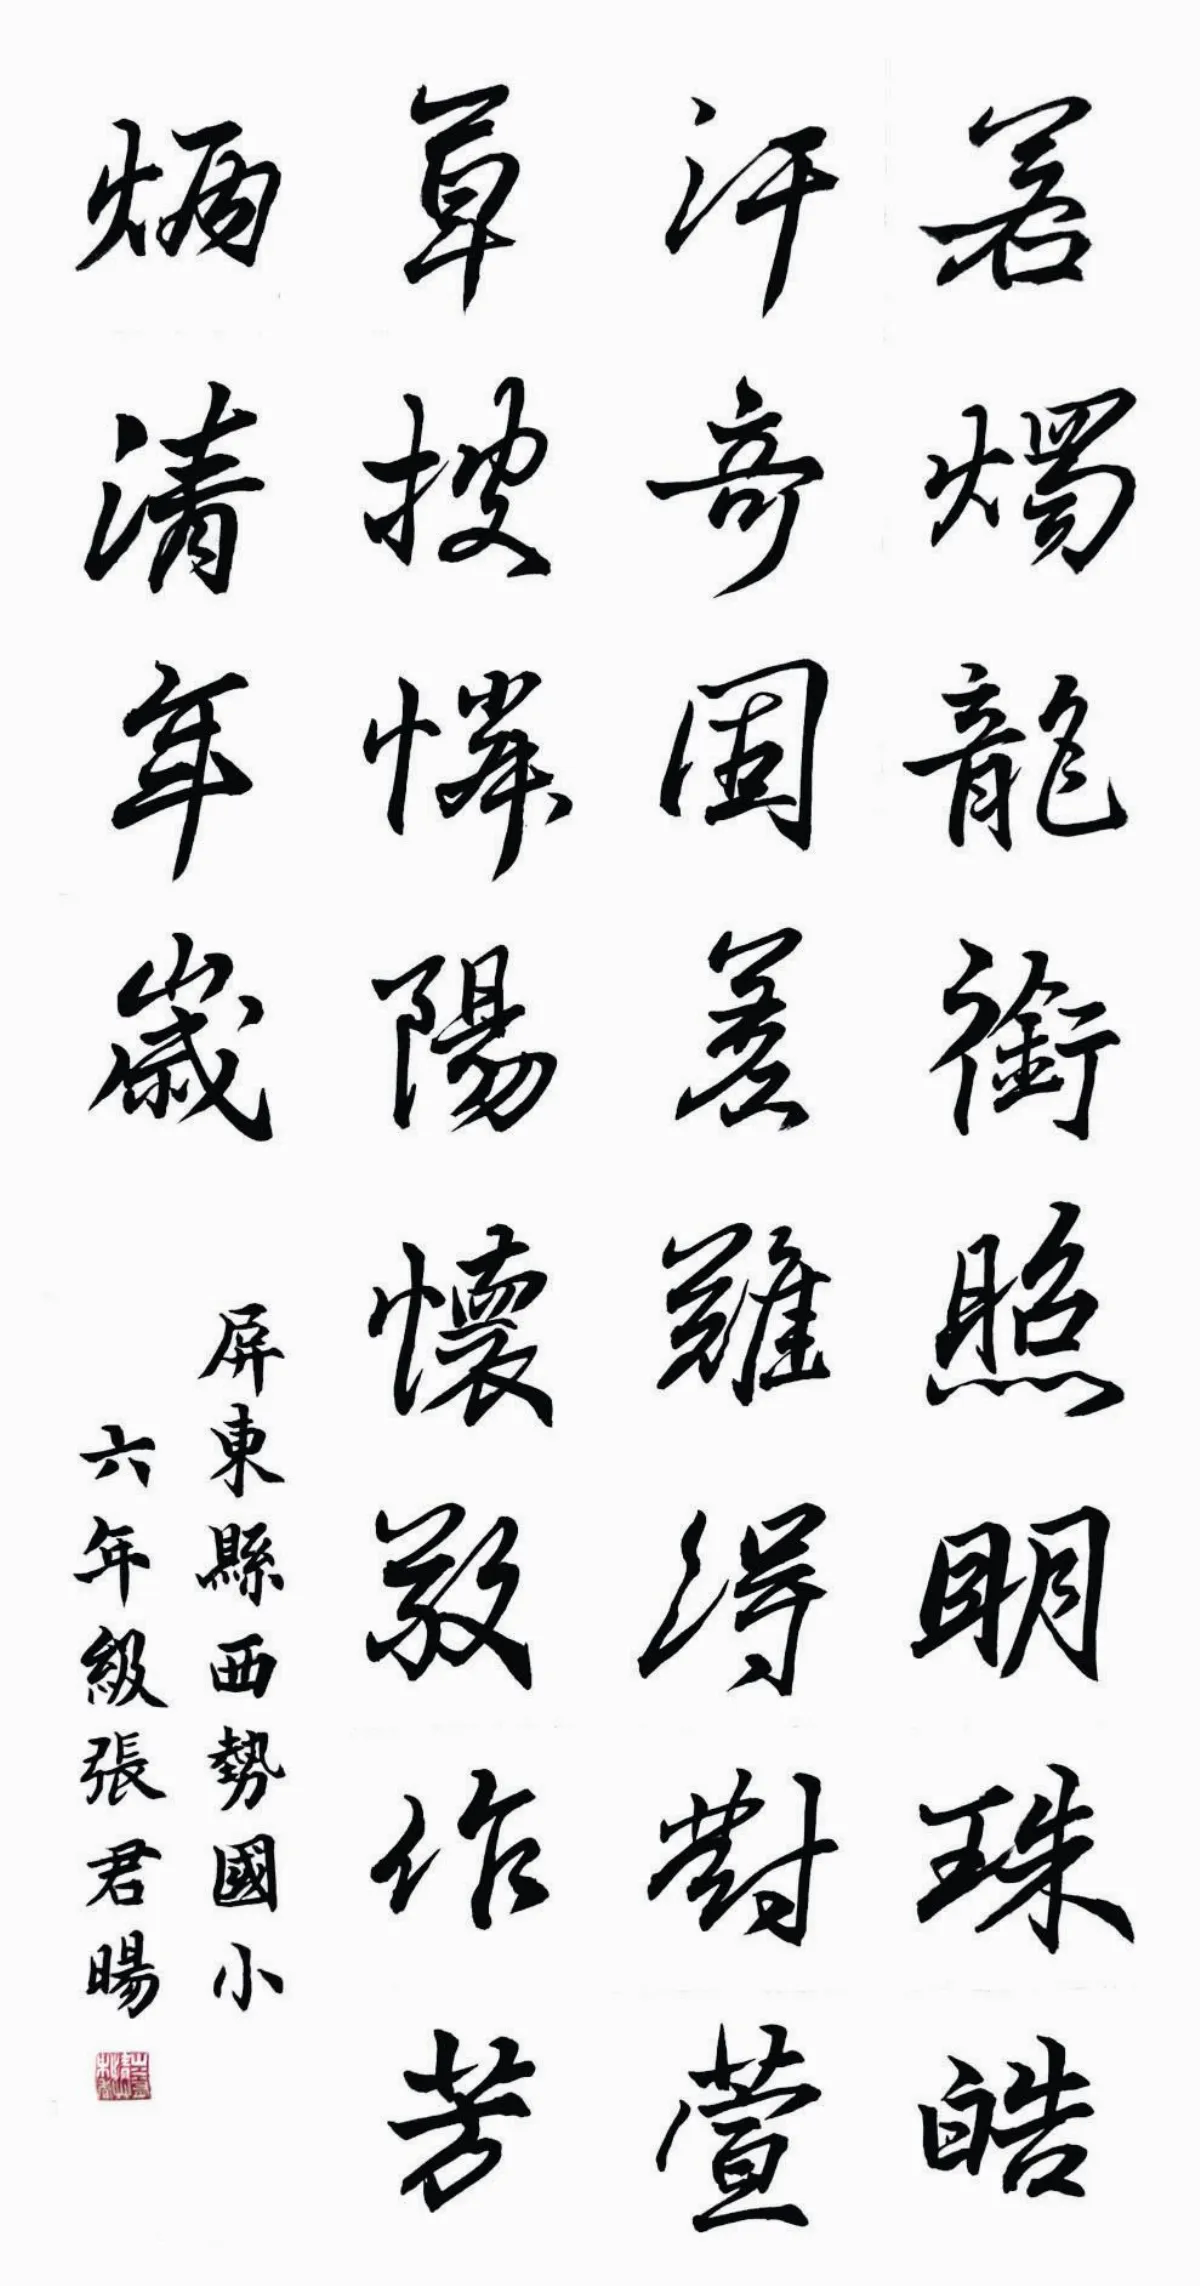 若燭龍銜照明珠皓
汗奇固難得對萱
草披憐陽懷敬作芳
炳清年歲
屏東縣西勢國小
六年級張君暘